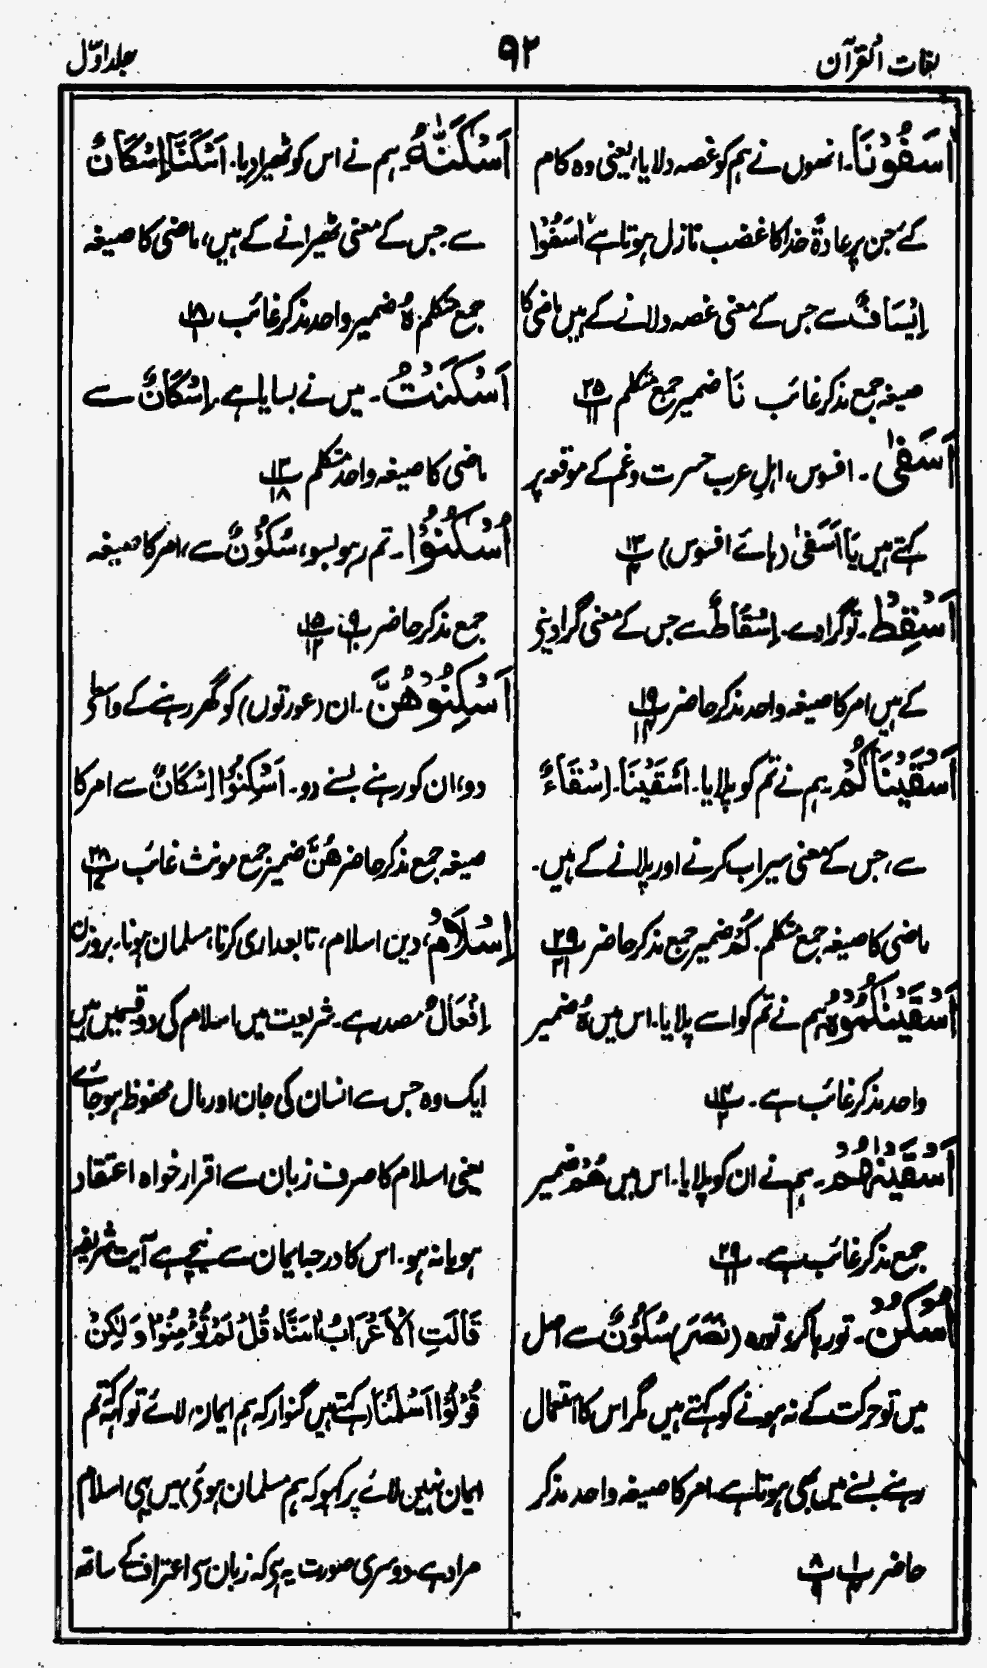 لغات القرآن ۹۲ جلد اوّل
اٰسَفُوْنَا۔ انھوں نے ہم کو غصہ دلایا، یعنی وہ کام
کئے جن پر عادۃً خدا کا غضب نازل ہوتا ہے اٰسَفُوْا
اِیْسَافٌ سے جس کے معنی غصہ دلانے کے ہیں ماضی کا
صیغہ جمع مذکر غائب نَا ضمیر جمع متکلم ۲۵ پ ۱۱
اَسَفٰی۔ افسوس، اہلِ عرب حسرت و غم کے موقعہ پر
کہتے ہیں یَا اَسَفٰی (ہائے افسوس) ۱۳ پ ۴
اَسْقِطْ۔ تو گرا دے۔ اِسْقَاطٌ سے جس کے معنی گرا دینے
کے ہیں امر کا صیغہ واحد مذکر حاضر ۱۹ پ ۱۴
اَسْقَیْنَاکُمْ۔ ہم نے تم کو پلایا۔ اَسْقَیْنَا۔ اِسْقَاءٌ
سے، جس کے معنی سیراب کرنے اور پلانے کے ہیں۔
ماضی کا صیغہ جمع متکلم۔ کُمْ ضمیر جمع مذکر حاضر ۲۹ پ ۲۱
اَسْقَیْنٰکُمُوْہُ ہم نے تم کو اسے پلایا۔ اس میں ہُ ضمیر
واحد مذکر غائب ہے۔ ۱۴ پ ۲
اَسْقَیْنٰہُمْ۔ ہم نے ان کو پلایا۔ اس میں ھُمْ ضمیر
جمع مذکر غائب ہے۔ ۲۹ پ ۱۱
اُسْکُنْ۔ تو رہا کر، تو رہ (نَصَرَ) سُکُوْنٌ سے اصل
میں تو حرکت کے نہ ہونے کو کہتے ہیں مگر اس کا استعمال
رہنے بسنے میں بھی ہوتا ہے۔ امر کا صیغہ واحد مذکر
حاضر ۱ پ ۴ ۸ پ ۹
اَسْکَنّٰہُ۔ ہم نے اس کو ٹھیرا دیا۔ اَسْکَنَّا اِسْکَانٌ
سے جس کے معنی ٹھیرانے کے ہیں، ماضی کا صیغہ
جمع متکلم ہُ ضمیر واحد مذکر غائب ۱۸ پ ۱
اَسْکَنْتُ۔ میں نے بسایا ہے۔ اِسْکَانٌ سے
ماضی کا صیغہ واحد متکلم ۱۳ پ ۱۸
اُسْکُنُوْا۔ تم رہو بسو، سُکُوْنٌ سے، امر کا صیغہ
جمع مذکر حاضر ۹ پ ۱۵ پ ۱۲
اَسْکِنُوْھُنَّ۔ ان (عورتوں) کو گھر رہنے کے واسطے
دو، ان کو رہنے بسنے دو۔ اَسْکِنُوْا اِسْکَانٌ سے امر کا
صیغہ جمع مذکر حاضر ھُنَّ ضمیر جمع مونث غائب ۲۸ پ ۱۷
اِسْلَام، دین اسلام، تابعداری کرنا، مسلمان ہونا۔ بروزن
اِفْعَالٌ مصدر ہے۔ شریعت میں اسلام کی دو قسمیں ہیں
ایک وہ جس سے انسان کی جان اور مال محفوظ ہو جائے
یعنی اسلام کا صرف زبان سے اقرار خواہ اعتقاد
ہو یا نہ ہو۔ اس کا درجہ ایمان سے نیچے ہے آیت شریفہ
قَالَتِ الْاَعْرَابُ اٰمَنَّاط قُلْ لَمْ تُؤْمِنُوْا وَ لٰکِنْ
قُوْلُوْا اَسْلَمْنَا (کہتے ہیں گنوار کہ ہم ایمان لائے تو کہہ تم
ایمان نہیں لائے پر کہو کہ ہم مسلمان ہوئے) میں یہی اسلام
مراد ہے۔ دوسری صورت یہ ہے کہ زبان سے اعتراف کے ساتھ